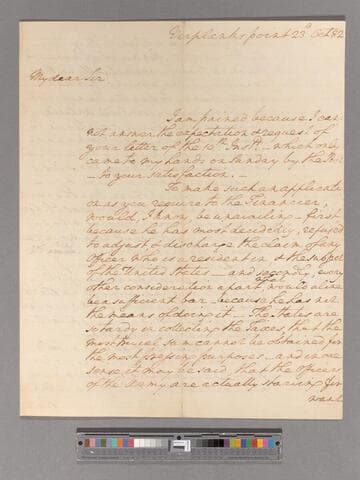 Verplanks point 23d Octr 82
My dear Sir
I am pained because I can
not answer the expectation & request of
your letter of the 10th Instt. – which only
came to my hands on Sunday by the Post
– to your satisfaction. –
To make such an applicatn
as you require to the Financier,
would, I know, be unavailing – first
because he has most decidedly, refused
to adjust, & discharge the claim of any
Officer who is a resident in, & the subject
of the United States – and secondly, every
other consideration apart, would alone
be a sufficient bar – because he has not
the means of doing it – The States are
so tardy in collecting the Taxes that the
most trivial sum cannot be obtained for
the most pressing purposes – and in one
sense, it may be said, that the officers
of the Army are actually starving for
want